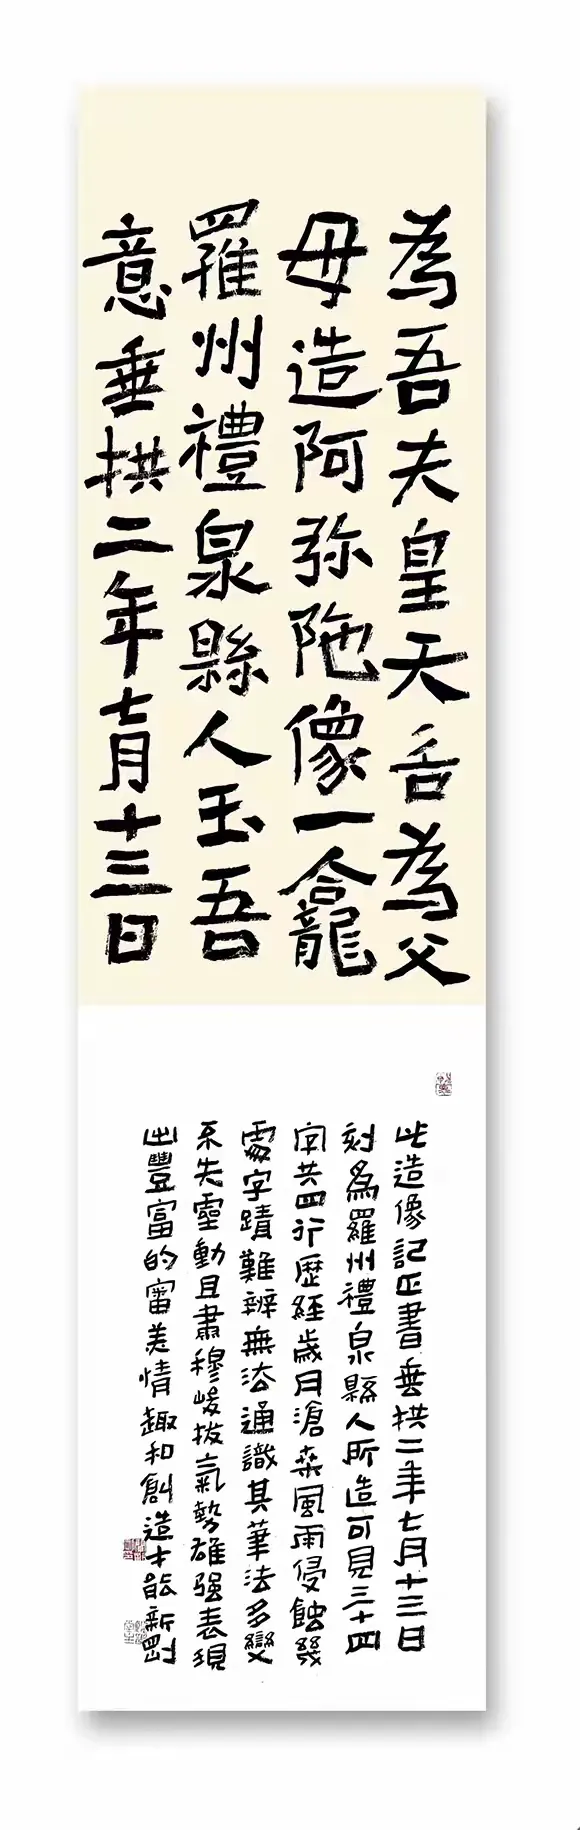 為吾夫皇天后為父
母造阿弥陁像一龕
羅州禮泉縣人玉吾
意垂拱二年七月十三日
此造像記正書垂拱二年七月十三日
刻為羅州禮泉縣人所造可見三十四
字共四行歷經歲月滄桑風雨侵蝕幾
處字蹟難辨無法通識其筆法多變
不失靈動且肅穆峻拔氣勢雄强表現
出豐富的審美情趣和創造才能新